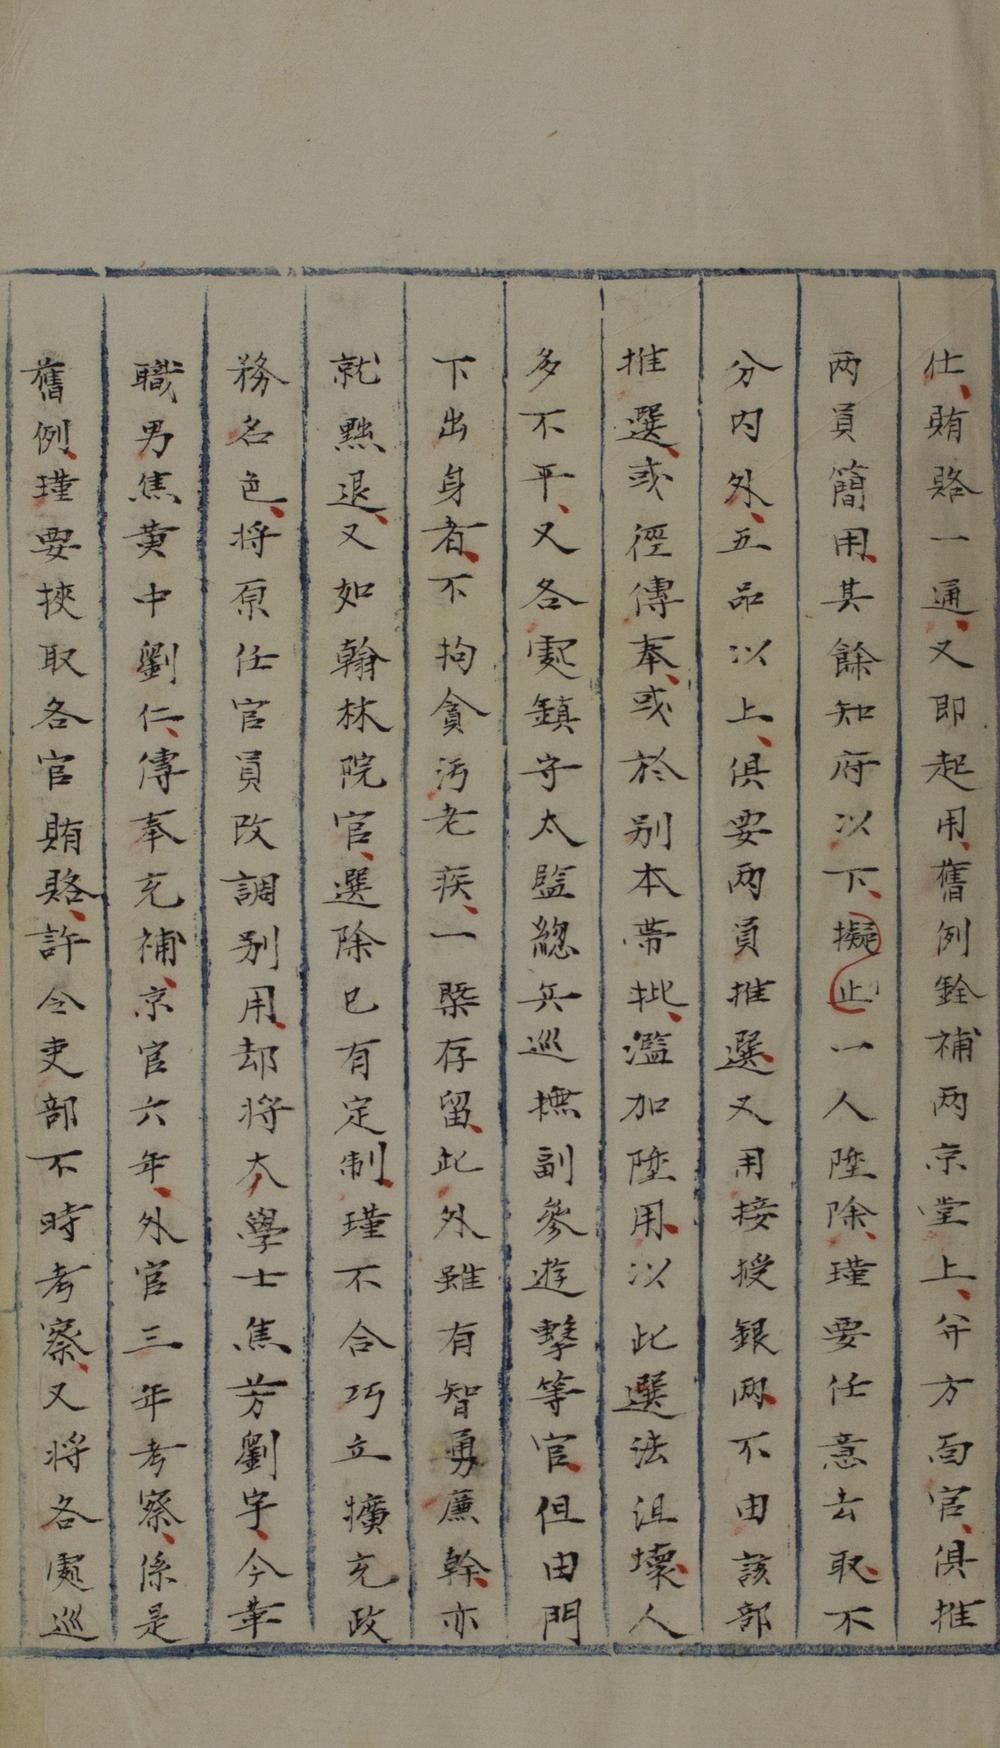 仕賄賂一通又即起用舊例銓補两京堂上并方面官俱推
两員簡用其餘知府以下擬止一人陞除瑾要任意去取不
分内外五品以上俱要两員推選又用接授銀两不由該部
推選或徑傳奉或於别本帶批濫加陞用以此選法沮壞人
多不平又各處鎮守太監總兵巡撫副參遊擊等官但由門
下出身者不拘貪污老疾一槩存留此外雖有智勇廉幹亦
就黜退又如翰林院官選除已有定制瑾不合巧立擴充政
務名色將原任官員改調别用却將大學士焦芳劉宇今革
職男焦黄中劉仁傳奉充補京官六年外官三年考察係是
舊例瑾要挾取各官賄賂許令吏部不時考察又將各處巡